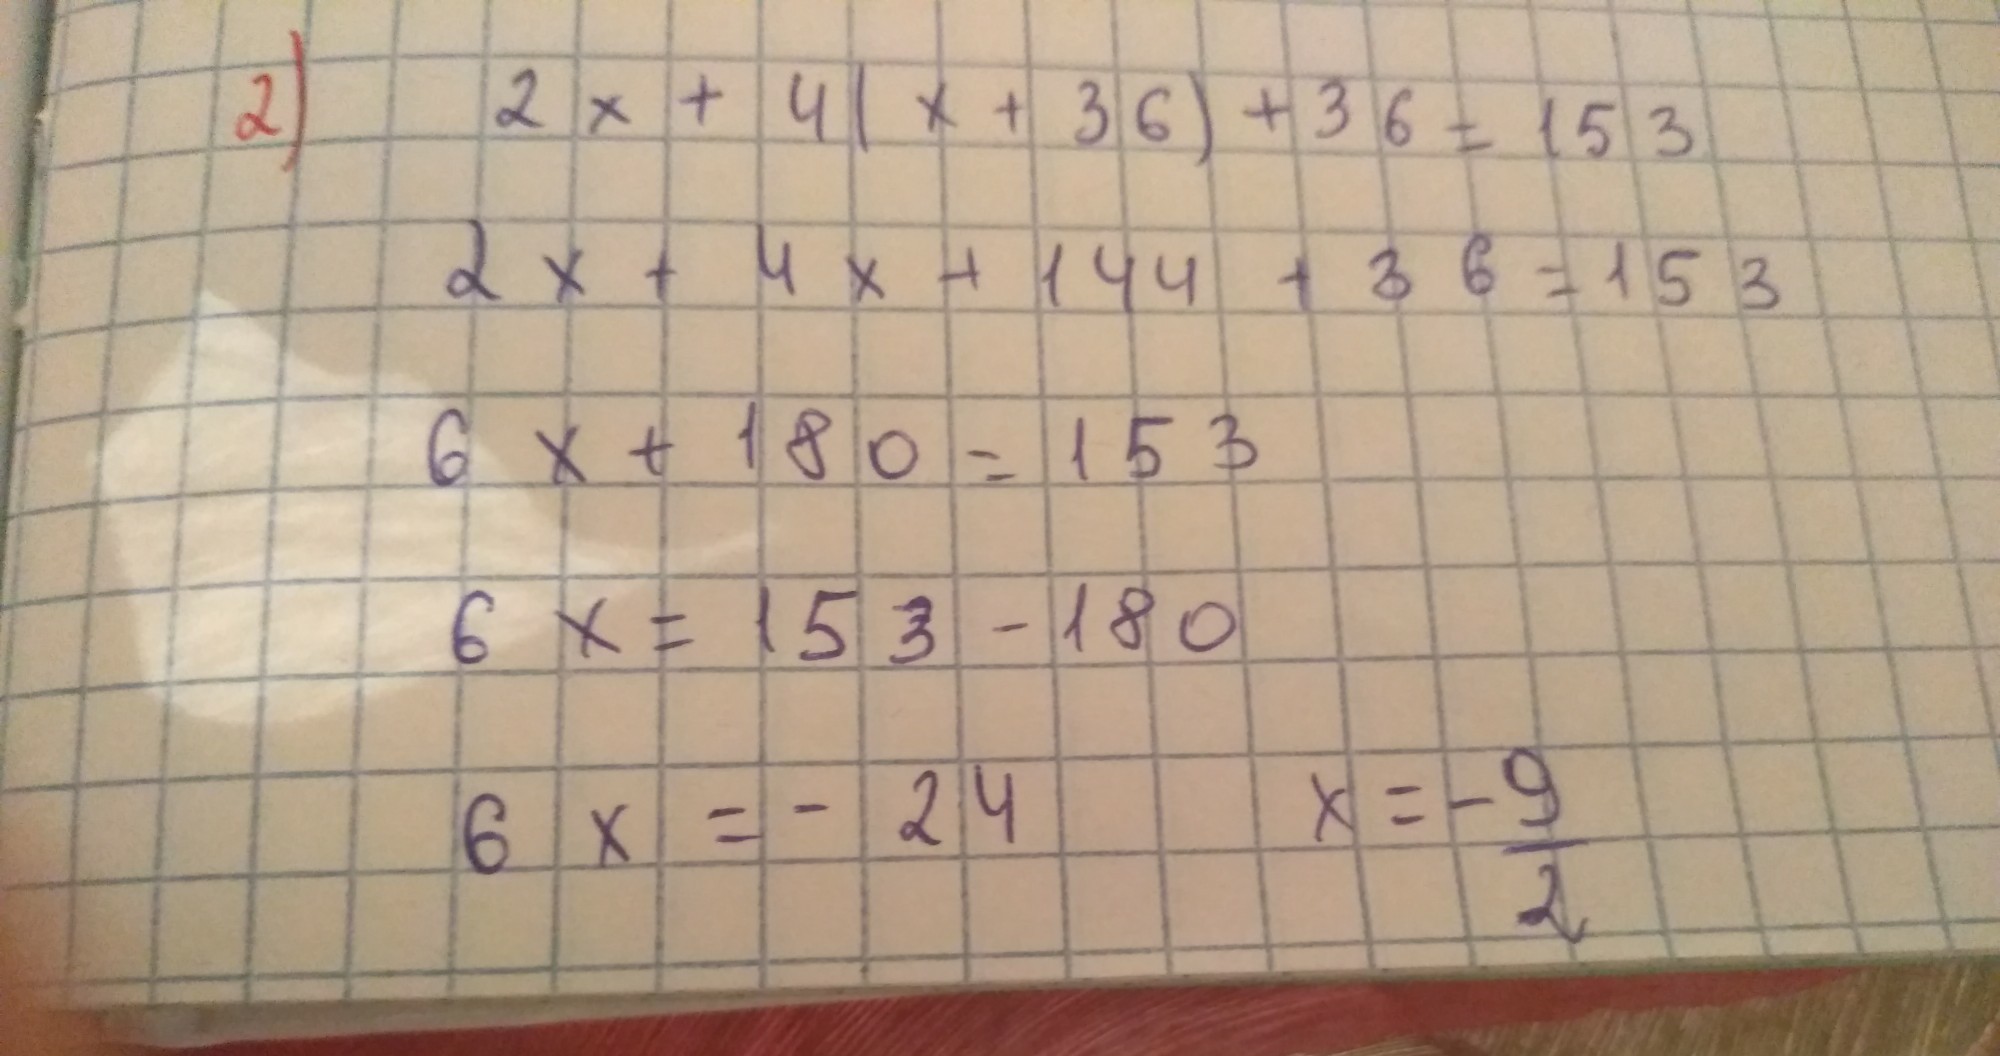 2) 2x + 4(x + 36) + 36 = 153
2x + 4x + 144 + 36 = 153
6x + 180 = 153
6x = 153 - 180
6x = - 24 x = - 9/2